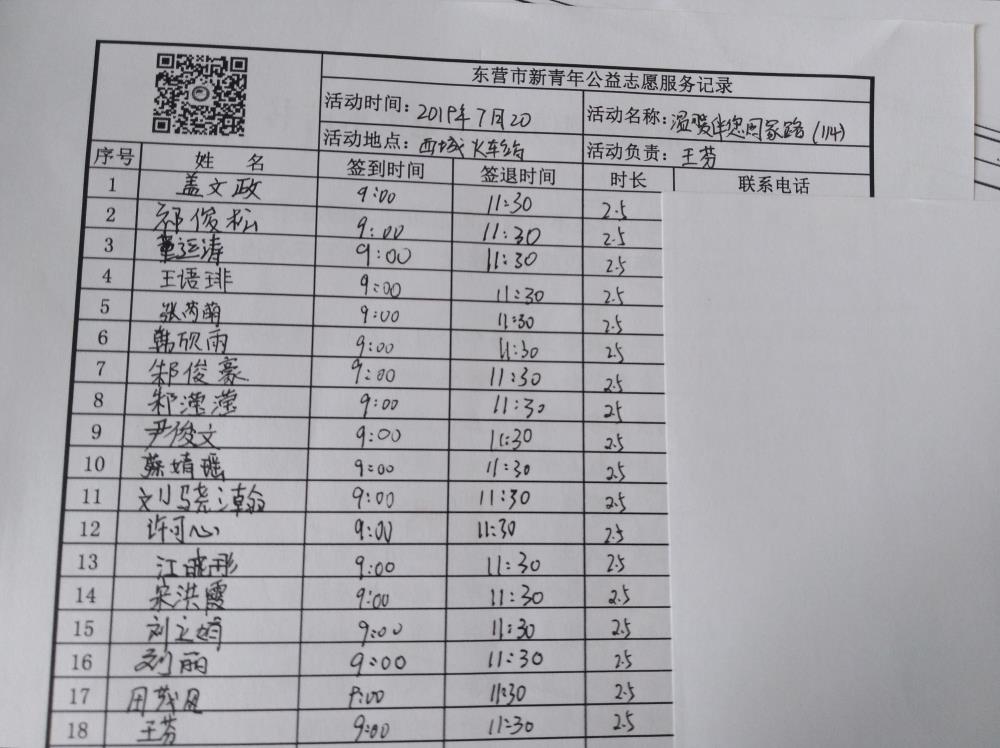 东营市新青年公益志愿服务记录
活动时间：2019年7月20 活动名称：温暖伴您回家路（114）
活动地点：西城火车站 活动负责：王芬
序号 姓名 签到时间 签退时间 时长 联系电话
1 盖文政 9:00 11:30 2.5
2 祁俊松 9:00 11:30 2.5
3 董运涛 9:00 11:30 2.5
4 王语琲 9:00 11:30 2.5
5 张芮萌 9:00 11:30 2.5
6 韩欣雨 9:00 11:30 2.5
7 郏俊豪 9:00 11:30 2.5
8 郏滢滢 9:00 11:30 2.5
9 尹俊文 9:00 11:30 2.5
10 蔡婧瑶 9:00 11:30 2.5
11 刘骁瀚 9:00 11:30 2.5
12 许可心 9:00 11:30 2.5
13 江晓彤 9:00 11:30 2.5
14 宋洪霞 9:00 11:30 2.5
15 刘立娟 9:00 11:30 2.5
16 刘丽 9:00 11:30 2.5
17 9:00 11:30 2.5
18 王芬 9:00 11:30 2.5